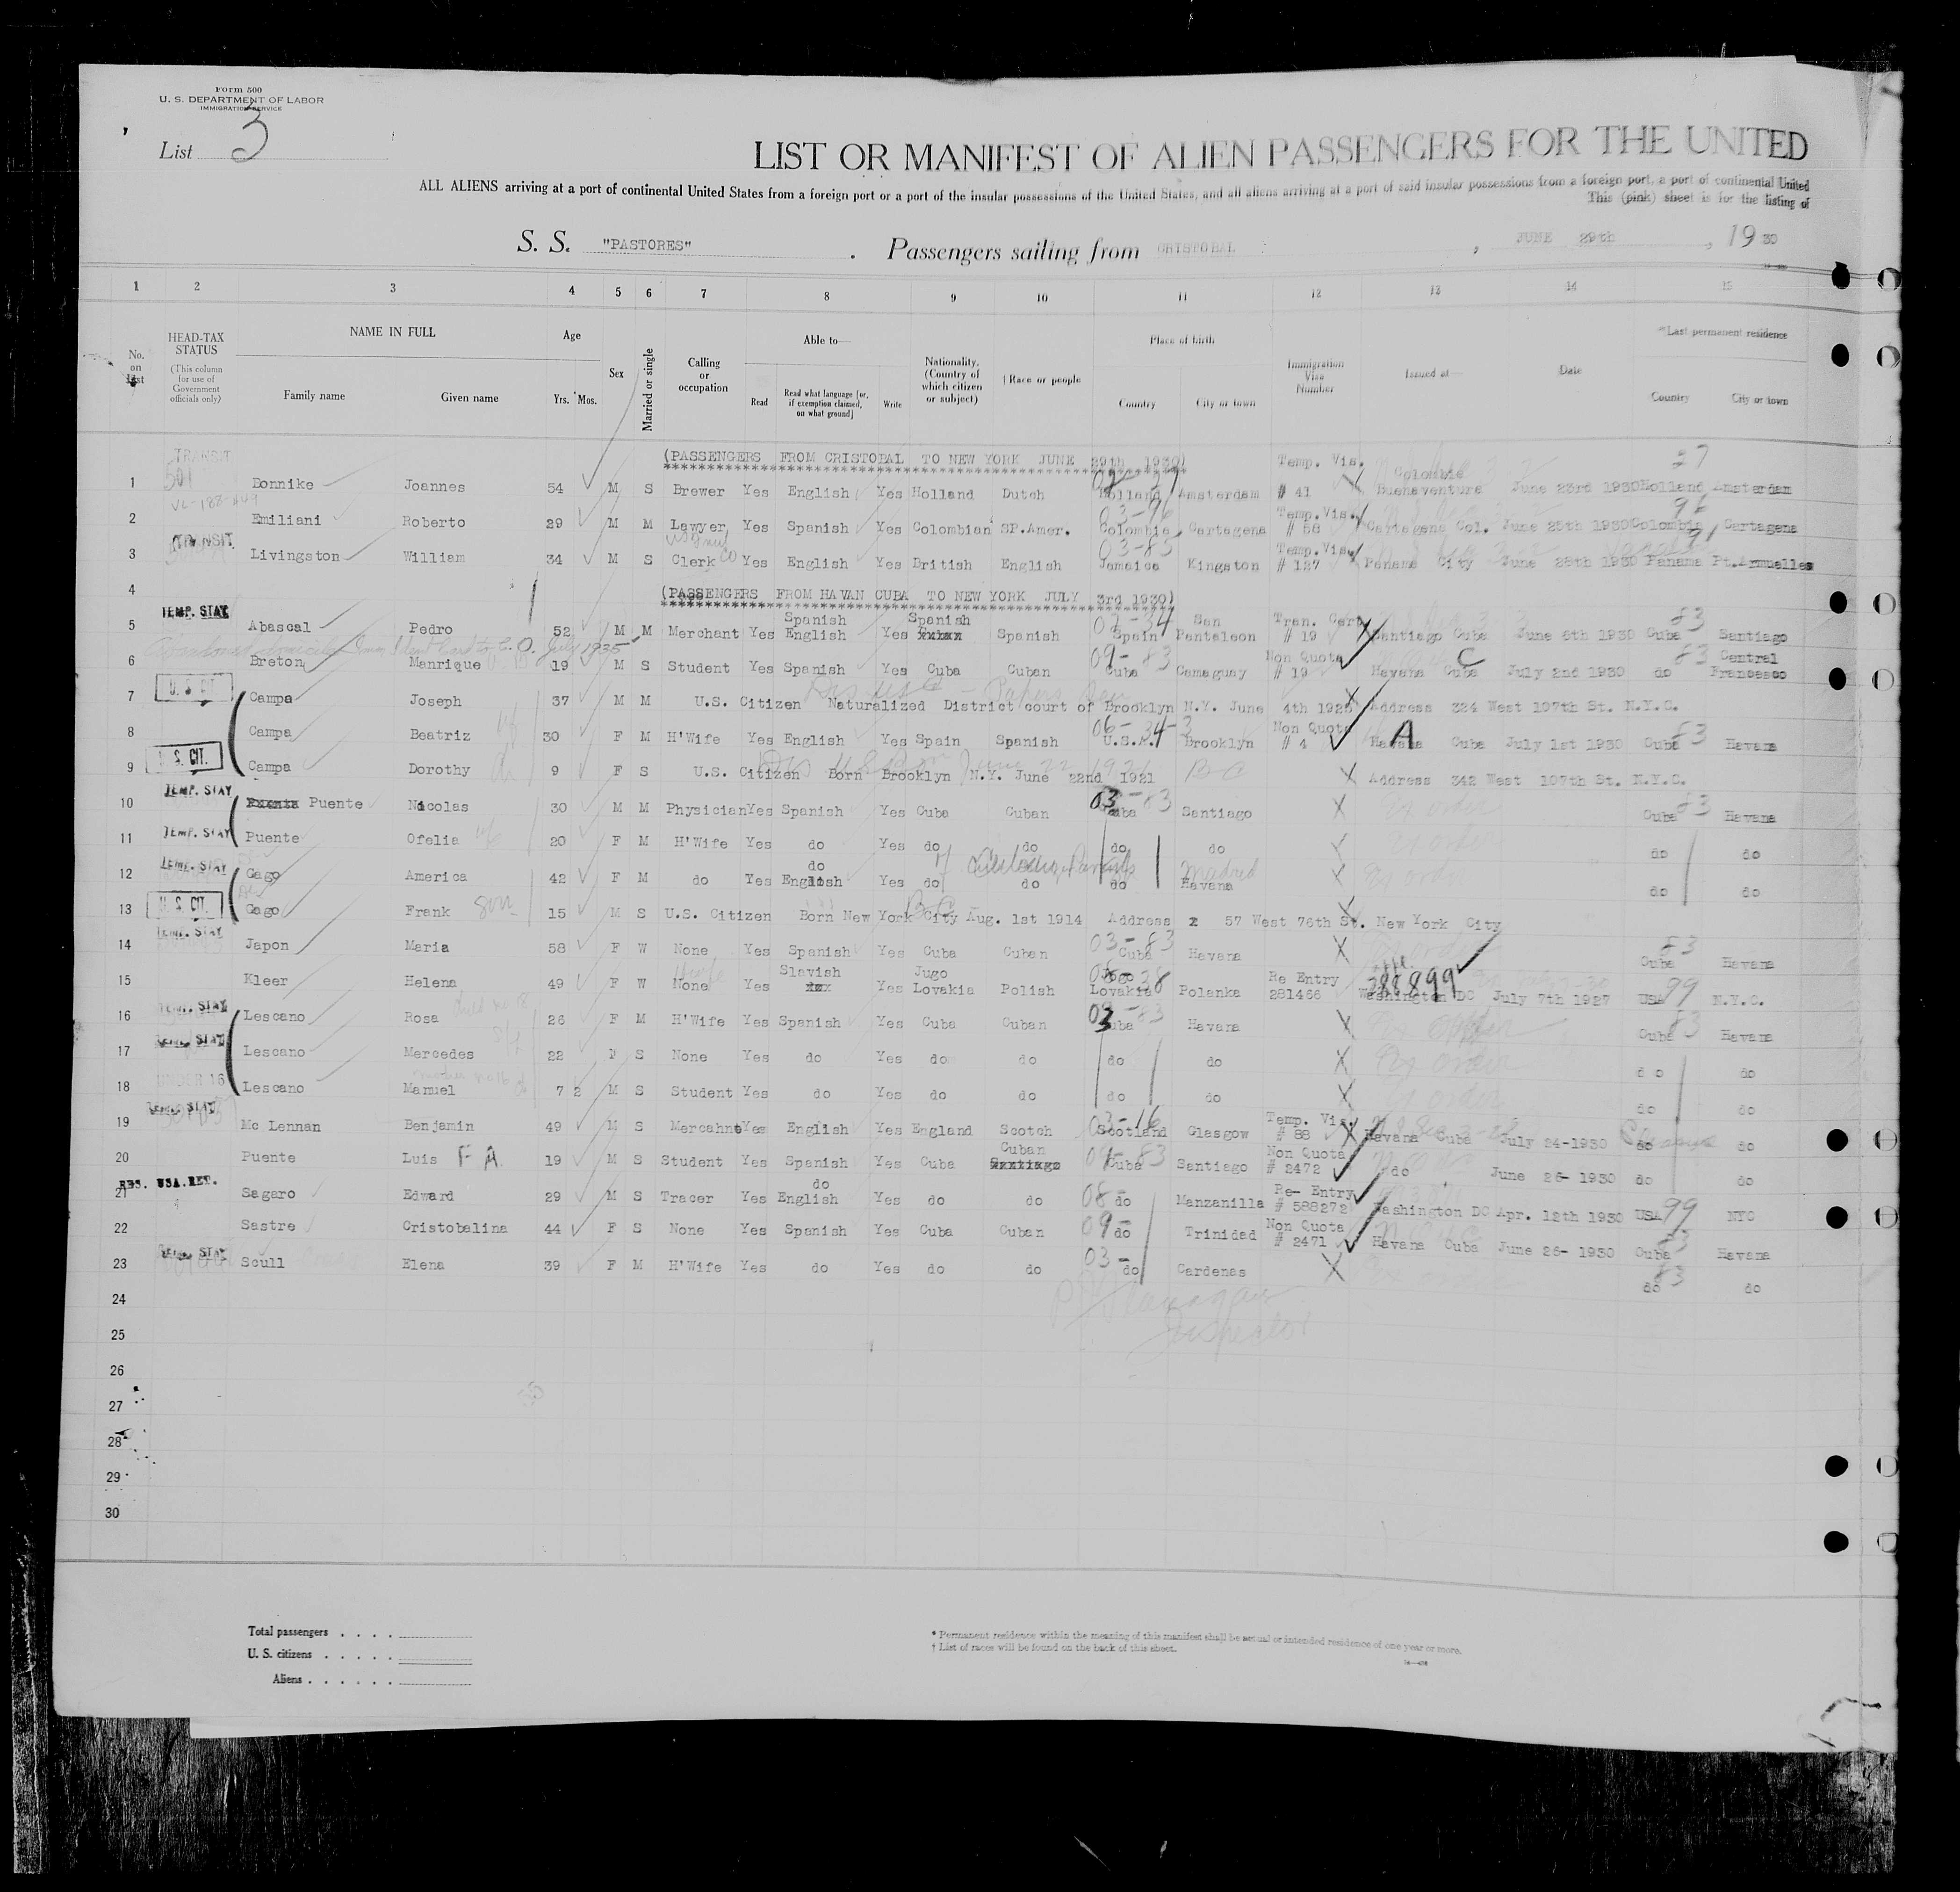 Form 500
U. S. DEPARTMENT OF LABOR
IMMIGRATION SERVICE
List 3
LIST OR MANIFEST OF ALIEN PASSENGERS FOR THE UNITED
ALL ALIENS arriving at a port of continental United States from a foreign port or a port of the insular possessions of the United States, and all aliens arriving at a port of said insular possessions from a foreign port, a port of continental United
This (pink) sheet is for the listing of
S. S. "PASTORES" . Passengers sailing from CRISTOBAL , JUNE 29th , 19 30
1 2 3 4 5 6 7 8 9 10 11 12 13 14 15
No. on List
HEAD-TAX STATUS (This column for use of Government officials only)
NAME IN FULL Family name Given name
Age Yrs. Mos.
Sex
Married or single
Calling or occupation
Able to— Read Read what language [or, if exemption claimed, on what ground] Write
Nationality. (Country of which citizen or subject)
† Race or people
Place of birth Country City or town
Immigration Visa Number
Issued at—
Date
*Last permanent residence Country City or town
(PASSENGERS FROM CRISTOBAL TO NEW YORK JUNE 29th 1930)
1 TRANSIT 501 Donnike Joannes 54 M S Brewer Yes English Yes Holland Dutch Holland Amsterdam Temp. Vis. # 41 Colombia Buenaventura June 23rd 1930 Holland Amsterdam 27
2 Emiliani Roberto 29 M M Lawyer Yes Spanish Yes Colombian SP.Amer. 03-96 Colombia Cartagena Temp.Vis. # 58 Cartagena Col. June 25th 1930 Colombia 96 Cartagena
3 TRANSIT Livingston William 34 M S Clerk Yes English Yes British English 03-85 Jamaica Kingston Temp.Vis. # 127 Panama City June 28th 1930 Panama 91 Pt.Armuelles
4 (PASSENGERS FROM HAVAN CUBA TO NEW YORK JULY 3rd 1930)
5 TEMP. STAY Abascal Pedro 52 M M Merchant Yes Spanish English Yes Spanish Spanish 02-34 Spain San Pantaleon Tran. Cert. # 19 Santiago Cuba June 6th 1930 Cuba 83 Santiago
6 Breton Manrique 19 M S Student Yes Spanish Yes Cuba Cuban 09-83 Cuba Camaguay Non Quota # 19 C Havana Cuba July 2nd 1930 do 83 Central Francesco
7 U. S. CIT. Campa Joseph 37 M M U.S. Citizen Naturalized District court of Brooklyn N.Y. June 4th 1925 Address 324 West 107th St. N.Y.C.
8 Campa Beatriz 30 F M H'Wife Yes English Yes Spain Spanish 06-34-2 U.S.A. Brooklyn Non Quota # 4 A Havana Cuba July 1st 1930 Cuba 83 Havana
9 U. S. CIT. Campa Dorothy 9 F S U.S. Citizen Born Brooklyn N.Y. June 22nd 1921 B-C Address 342 West 107th St. N.Y.C.
10 TEMP. STAY Puente Nicolas 30 M M Physician Yes Spanish Yes Cuba Cuban 03-83 Cuba Santiago Cuba 83 Havana
11 TEMP. STAY Puente Ofelia 20 F M H'Wife Yes do Yes do do do do do do
12 TEMP. STAY Gago America 42 F M do Yes do English Yes do do do Havana Madrid do do
13 U. S. CIT. Gago Frank son 15 M S U.S. Citizen Born New York City Aug. 1st 1914 Address 57 West 76th St. New York City
14 TEMP. STAY Japon Maria 58 F W None Yes Spanish Yes Cuba Cuban 03-83 Cuba Havana Cuba 83 Havana
15 Kleer Helena 49 F W None Yes Slavish Yes Jugo Lovakia Polish Lovakia 38 Polanka Re Entry 281466 Washington DC 288899 July 7th 1927 USA 99 N.Y.C.
16 TEMP. STAY Lescano Rosa 26 F M H'Wife Yes Spanish Yes Cuba Cuban 03-83 Cuba Havana Cuba 83 Havana
17 TEMP. STAY Lescano Mercedes 22 S None Yes do Yes do do do do do do
18 UNDER 16 Lescano Manuel 7 2 M S Student Yes do Yes do do do do do do
19 TEMP. STAY Mc Lennan Benjamin 49 M S Mercahnt Yes English Yes England Scotch 03-16 Scotland Glasgow Temp. Vis. # 88 Havana Cuba July 24-1930 do do
20 Puente Luis F A. 19 M S Student Yes Spanish Yes Cuba Cuban 09-83 Cuba Santiago Non Quota # 2472 do June 26- 1930 do do
21 RES. USA. RET. Sagaro Edward 29 M S Tracer Yes do English Yes do do 08- do Manzanilla Re- Entry # 588272 Washington DC Apr. 12th 1930 USA 99 NYC
22 Sastre Cristobalina 44 F S None Yes Spanish Yes Cuba Cuban 09- do Trinidad Non Quota # 2471 Havana Cuba June 26- 1930 Cuba 83 Havana
23 TEMP. STAY Scull Elena 39 F M H'Wife Yes do Yes do do 03- do Cardenas do 83 do
24 Flanagan
25 Inspector
26
27
28
29
30
Total passengers . . . .
U. S. citizens . . . . .
Aliens . . . . . .
* Permanent residence within the meaning of this manifest shall be actual or intended residence of one year or more.
† List of races will be found on the back of this sheet.